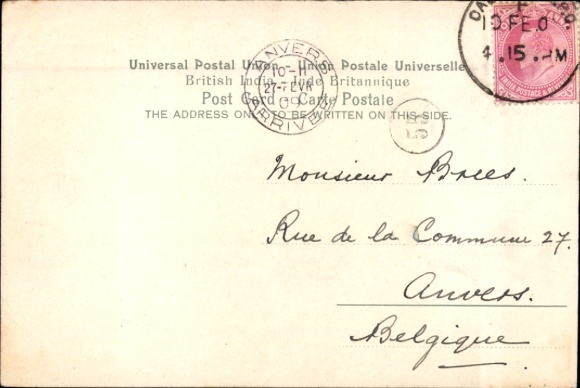 Universal Postal Union - Union Postale Universelle
British India - Inde Britannique
Post Card - Carte Postale
THE ADDRESS ONLY TO BE WRITTEN ON THIS SIDE.
ANVERS
10-11
27-FEVR
09
ARRIVEE
55
10 FE.0
4.15.PM
INDIA POSTAGE & REVENUE
Monsieur Brees.
Rue de la Commune 27.
Anvers.
Belgique